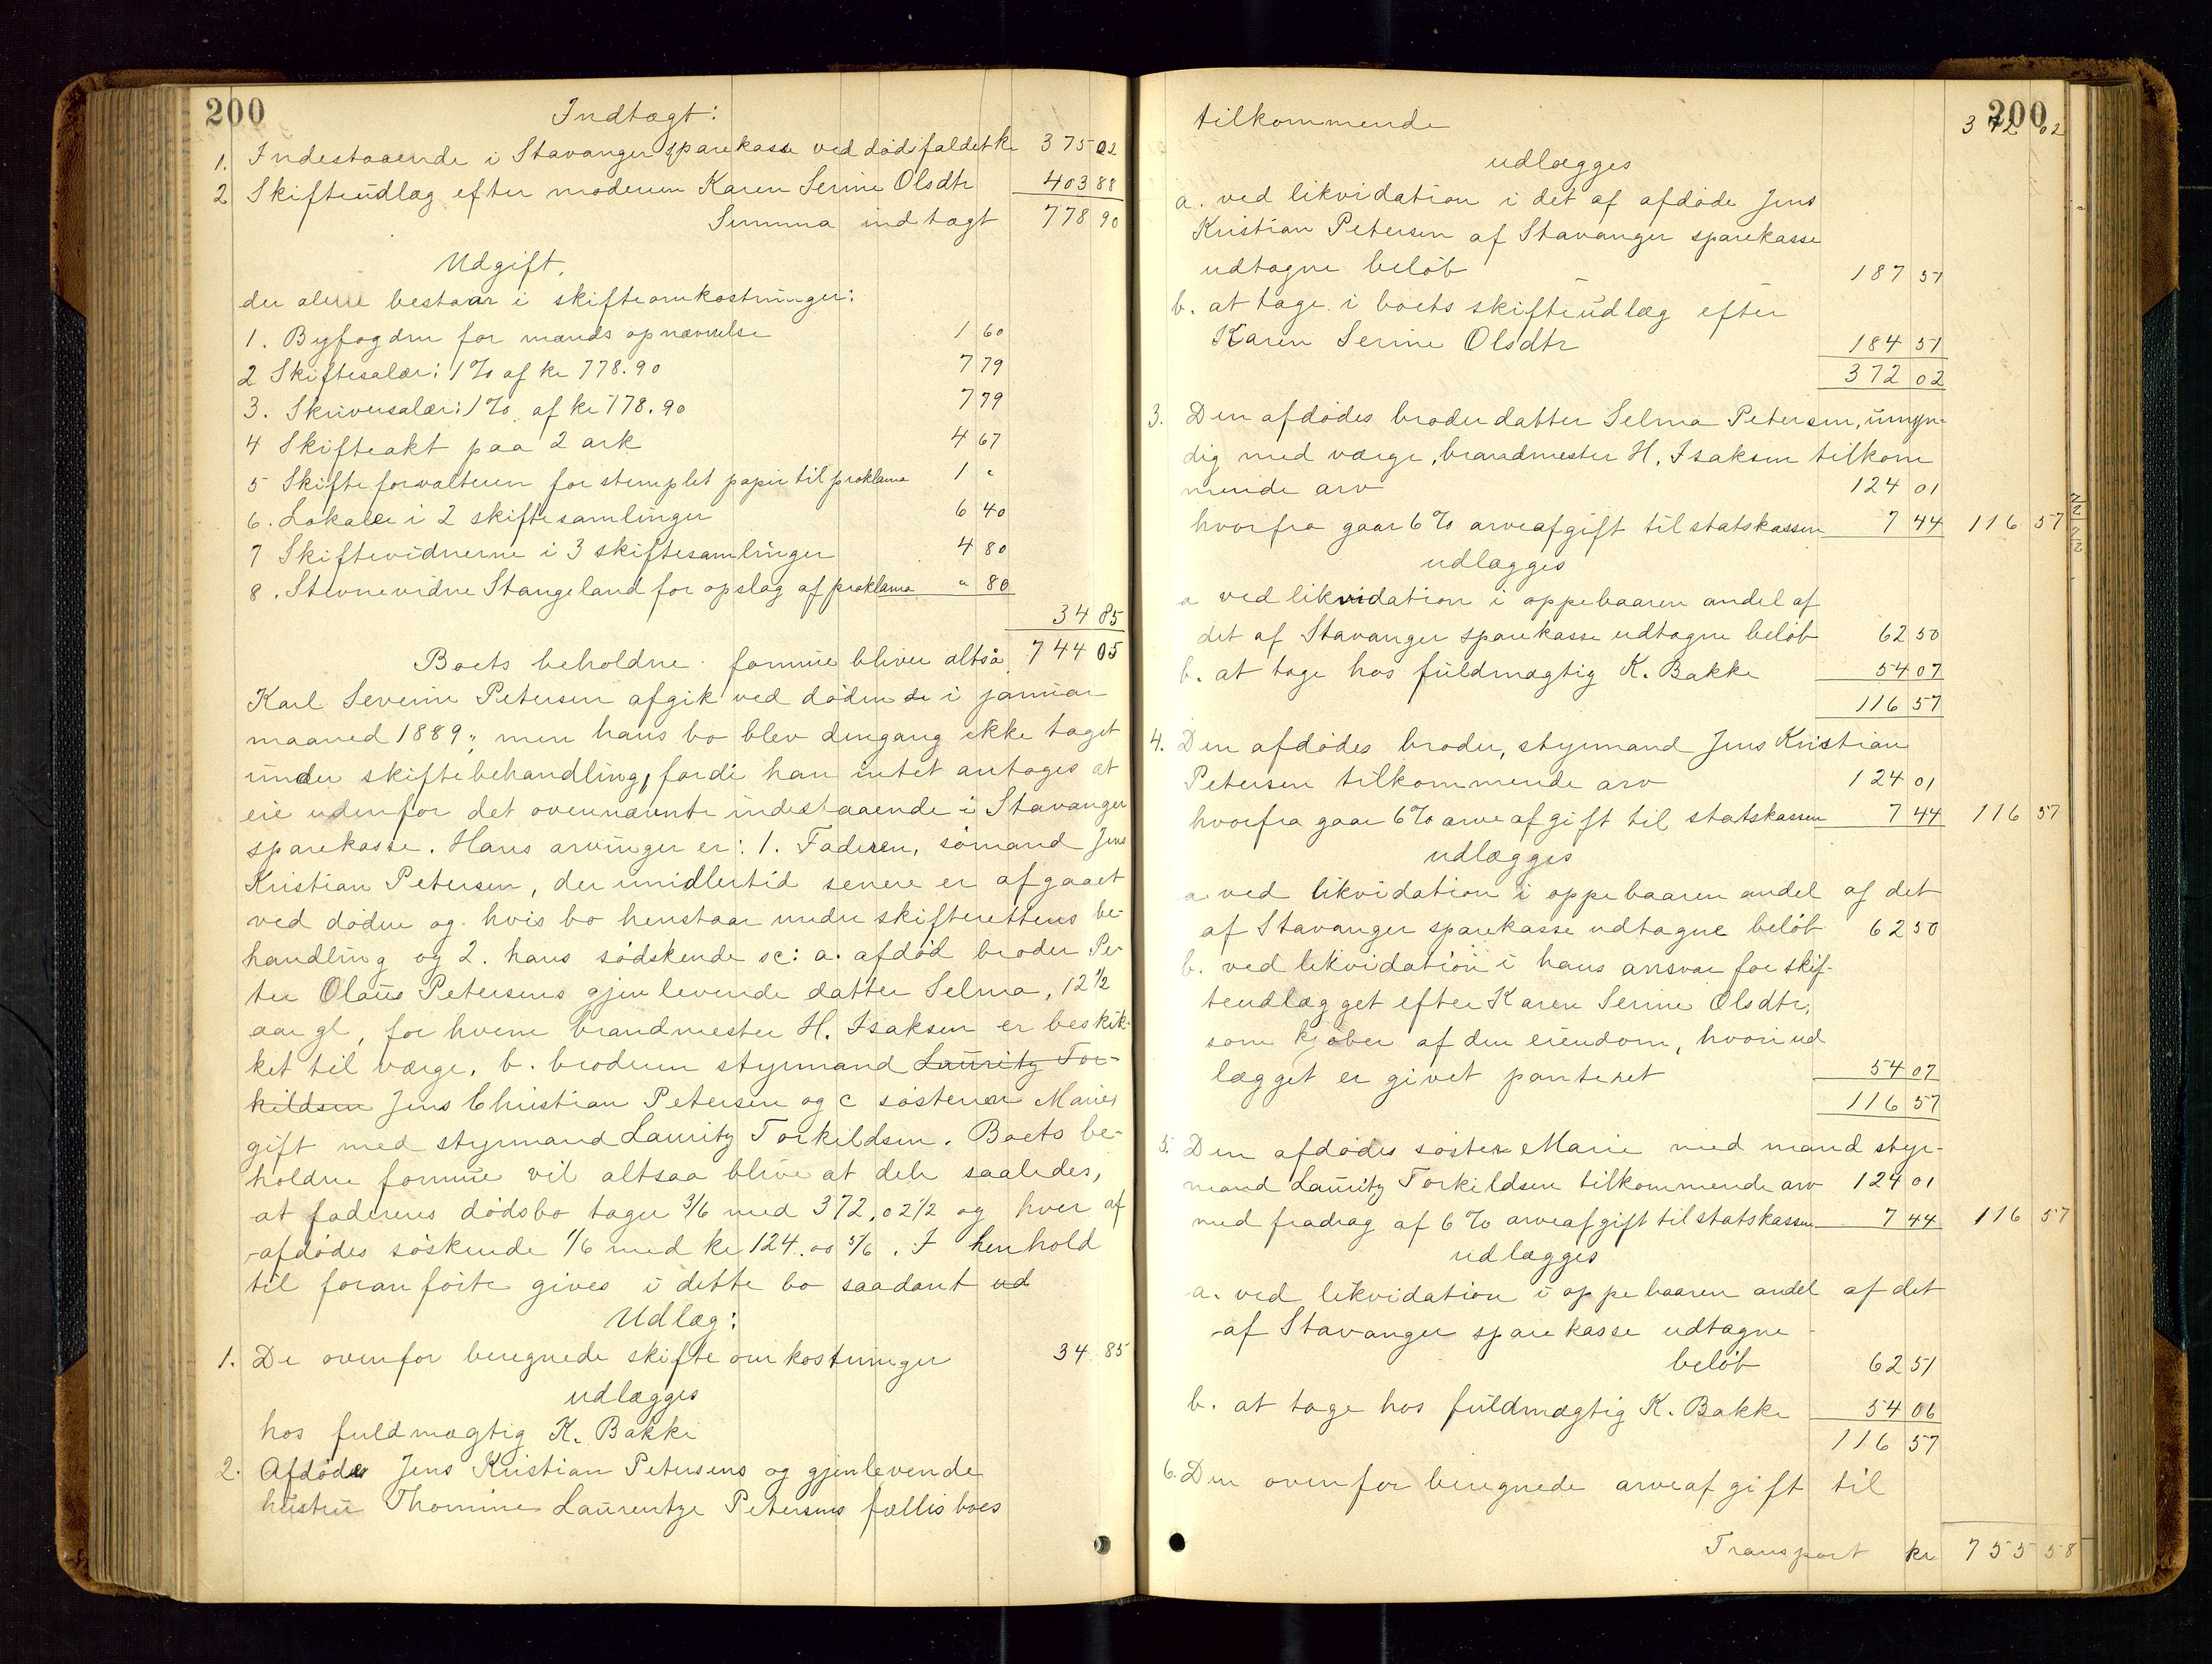 200
Indtægt:
1. Indestaaende i Stavanger sparekasse ved dødsfaldet kr 375 02
2 Skifteudlæg efter moderen Karen Serine Olsdtr 403 88
Summa indtægt 778 90
Udgift,
der alene bestaar i skifteomkostninger:
1. Byfogden for mænds opnævnelse 1 60
2 Skiftesalær: 1% af kr 778.90 7 79
3. Skriversalær: 1% af kr 778.90 7 79
4 Skifteakt paa 2 ark 4 67
5 Skifteforvalteren for stemplet papir til proklama 1 "
6. Lokale i 2 skiftesamlinger 6 40
7 Skiftevidnerne i 3 skiftesamlinger 4 80
8. Stevnevidne Stangeland for opslag af proklama " 80
34 85
Boets beholdne formue bliver altså 744 05
Karl Severin Petersen afgik ved døden i januar
maaned 1889; men hans bo blev dengang ikke taget
under skiftebehandling, fordi han intet antoges at
eie udenfor det ovennævnte indestaaende i Stavanger
sparekasse. Hans arvinger er: 1. Faderen, sømand Jens
Kristian Petersen, der imidlertid senere er afgaaet
ved døden og hvis bo henstaar under skifterettens be-
handling og 2. hans sødskende sc: a. afdød broder Pe-
ter Olaus Petersens gjenlevende datter Selma, 12 1/2
aar gl, for hvem brandmester H. Isaksen er beskik-
ket til værge, b. broderen styrmand Lauritz Tor-
kildsen Jens Christian Petersen og c søsteren Marie,
gift med styrmand Lauritz Torkildsen. Boets be-
holdne formue vil altsaa blive at dele saaledes,
at faderens dødsbo tager 3/6 med 372,02 1/2 og hver af
afdødes søskende 1/6 med kr 124.00 5/6. I henhold
til foranførte gives i dette bo saadant ud
Udlæg:
1. De ovenfor beregnede skifteomkostninger 34 85
udlægges
hos fuldmægtig K. Bakke
2. Afdøde Jens Kristian Petersens og gjenlevende
hustru Thomine Laurentze Petersens fællisboes
200
tilkommende 372 02
udlægges
a. ved likvidation i det af afdøde Jens
Kristian Petersen af Stavanger sparekasse
udtagne beløb 187 51
b. at tage i boets skifteudlæg efter
Karen Serine Olsdtr 184 51
372 02
3. Den afdødes broderdatter Selma Petersen, umyn-
dig med værge, brandmester H. Isaksen tilkom
mende arv 124 01
hvorfra gaar 6% arveafgift til statskassen 7 44 116 57
udlægges
a ved likvidation i oppebaaren andel af
det af Stavanger sparekasse udtagne beløb 62 50
b. at tage hos fuldmægtig K. Bakke 54 07
116 57
4. Den afdødes broder, styrmand Jens Kristian
Petersen tilkommende arv 124 01
hvorfra gaar 6% arveafgift til statskassen 7 44 116 57
udlægges
a ved likvidation i oppebaaren andel af det
af Stavanger sparekasse udtagne beløb 62 50
b. ved likvidation i hans ansvar for skif-
teudlægget efter Karen Serine Olsdtr,
som kjøber af den eiendom, hvori ud
lægget er givet panteret 54 07
116 57
5. Den afdødes søster Marie med mand styr-
mand Lauritz Torkildsen tilkommende arv 124 01
med fradrag af 6% arveafgift til statskassen 7 44 116 57
udlægges
a. ved likvidation i oppebaaren andel af det
af Stavanger sparekasse udtagne
beløb 62 51
b. at tage hos fuldmægtig K. Bakke 54 06
116 57
6. Den ovenfor beregnede arveafgift til
Transport kr 755 58